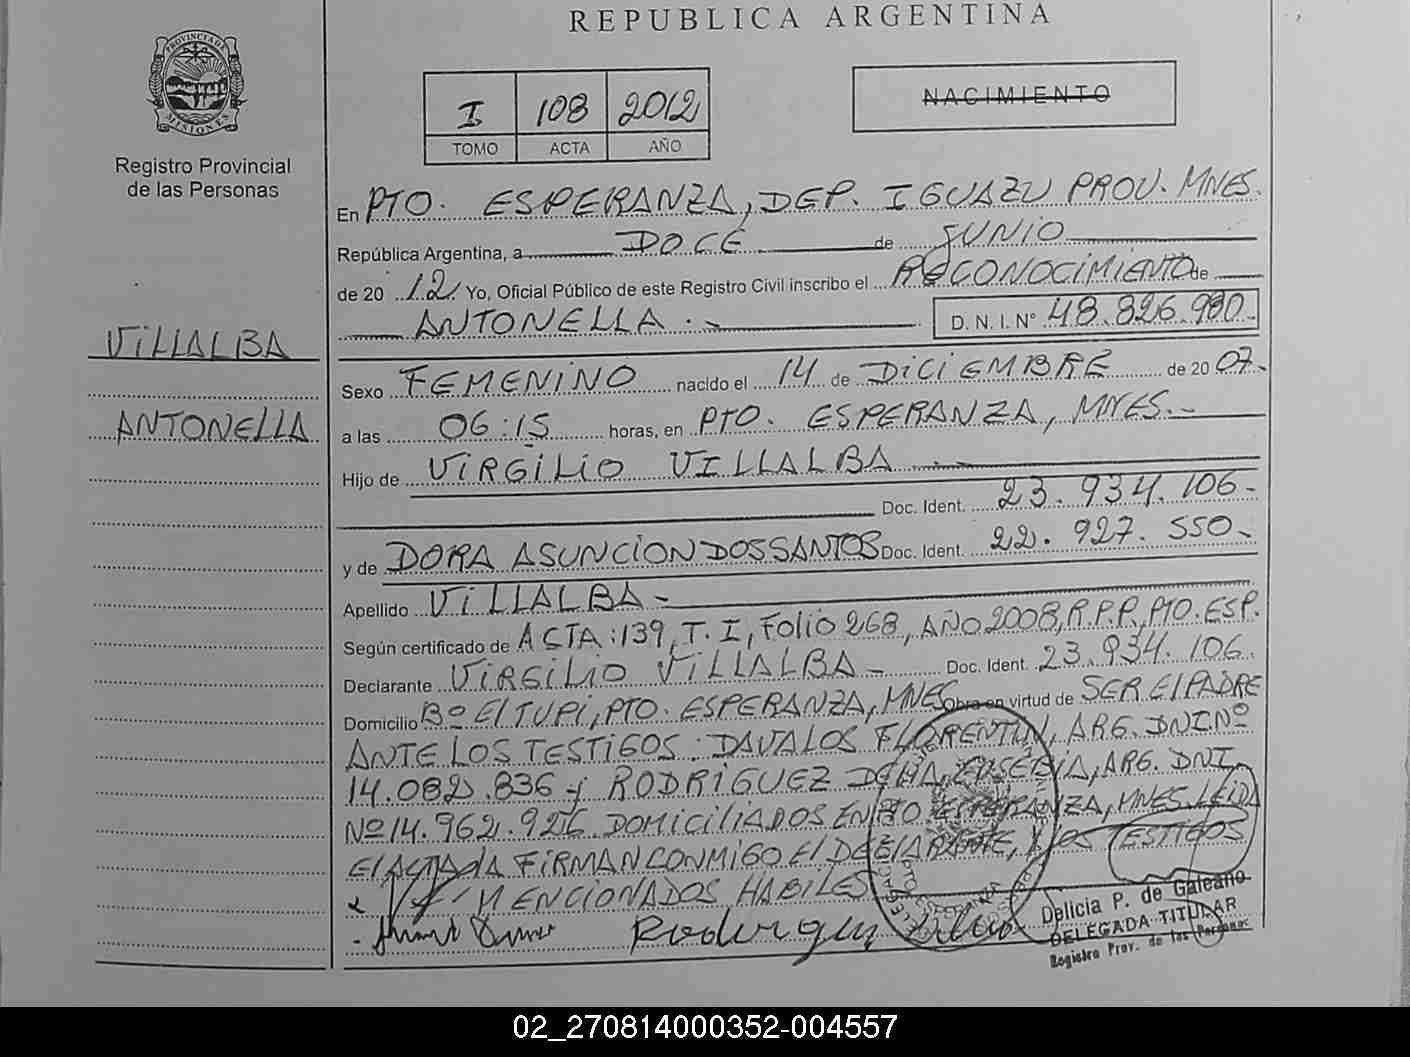 REPUBLICA ARGENTINA
PROVINCIA DE
MISIONES
Registro Provincial
de las Personas
I 108 2012
TOMO ACTA AÑO
NACIMIENTO
En PTO. ESPERANZA, DEP. IGUAZU PROV. MNES.
República Argentina, a DOCE de JUNIO
de 20 12. Yo, Oficial Público de este Registro Civil inscribo el RECONOCIMIENTO de
ANTONELLA.- D. N. I. N° 48.826.980-
VILLALBA
Sexo FEMENINO nacido el 14 de DICIEMBRE de 20 07.-
ANTONELLA
a las 06:15 horas, en PTO. ESPERANZA, MNES.-
Hijo de VIRGILIO VILLALBA .-
Doc. Ident. 23.934.106-
y de DORA ASUNCION DOS SANTOS Doc. Ident. 22.927.550-
Apellido VILLALBA-
Según certificado de ACTA: 139, T. I, Folio 268, AÑO 2008, R.P.P, PTO. ESP.
Declarante VIRGILIO VILLALBA- Doc. Ident. 23.934.106.
Domicilio Bº El TUPI, PTO. ESPERANZA, MNES Obra en virtud de SER El PADRE
ANTE LOS TESTIGOS: DAVALOS FLORENTIN, ARG. DNI.Nº
14.082.836 y RODRIGUEZ EUSEBIA, ARG. DNI.
Nº 14.962.926 DOMICILIADOS EN PTO. ESPERANZA, MNES. LEIDA
El ACTA LA FIRMAN CONMIGO El DECLARANTE, Y LOS TESTIGOS
MENCIONADOS HABILES
Rodriguez
Delicia P. de Galeano
DELEGADA TITULAR
Registro Prov. de las Personas
02_270814000352-004557